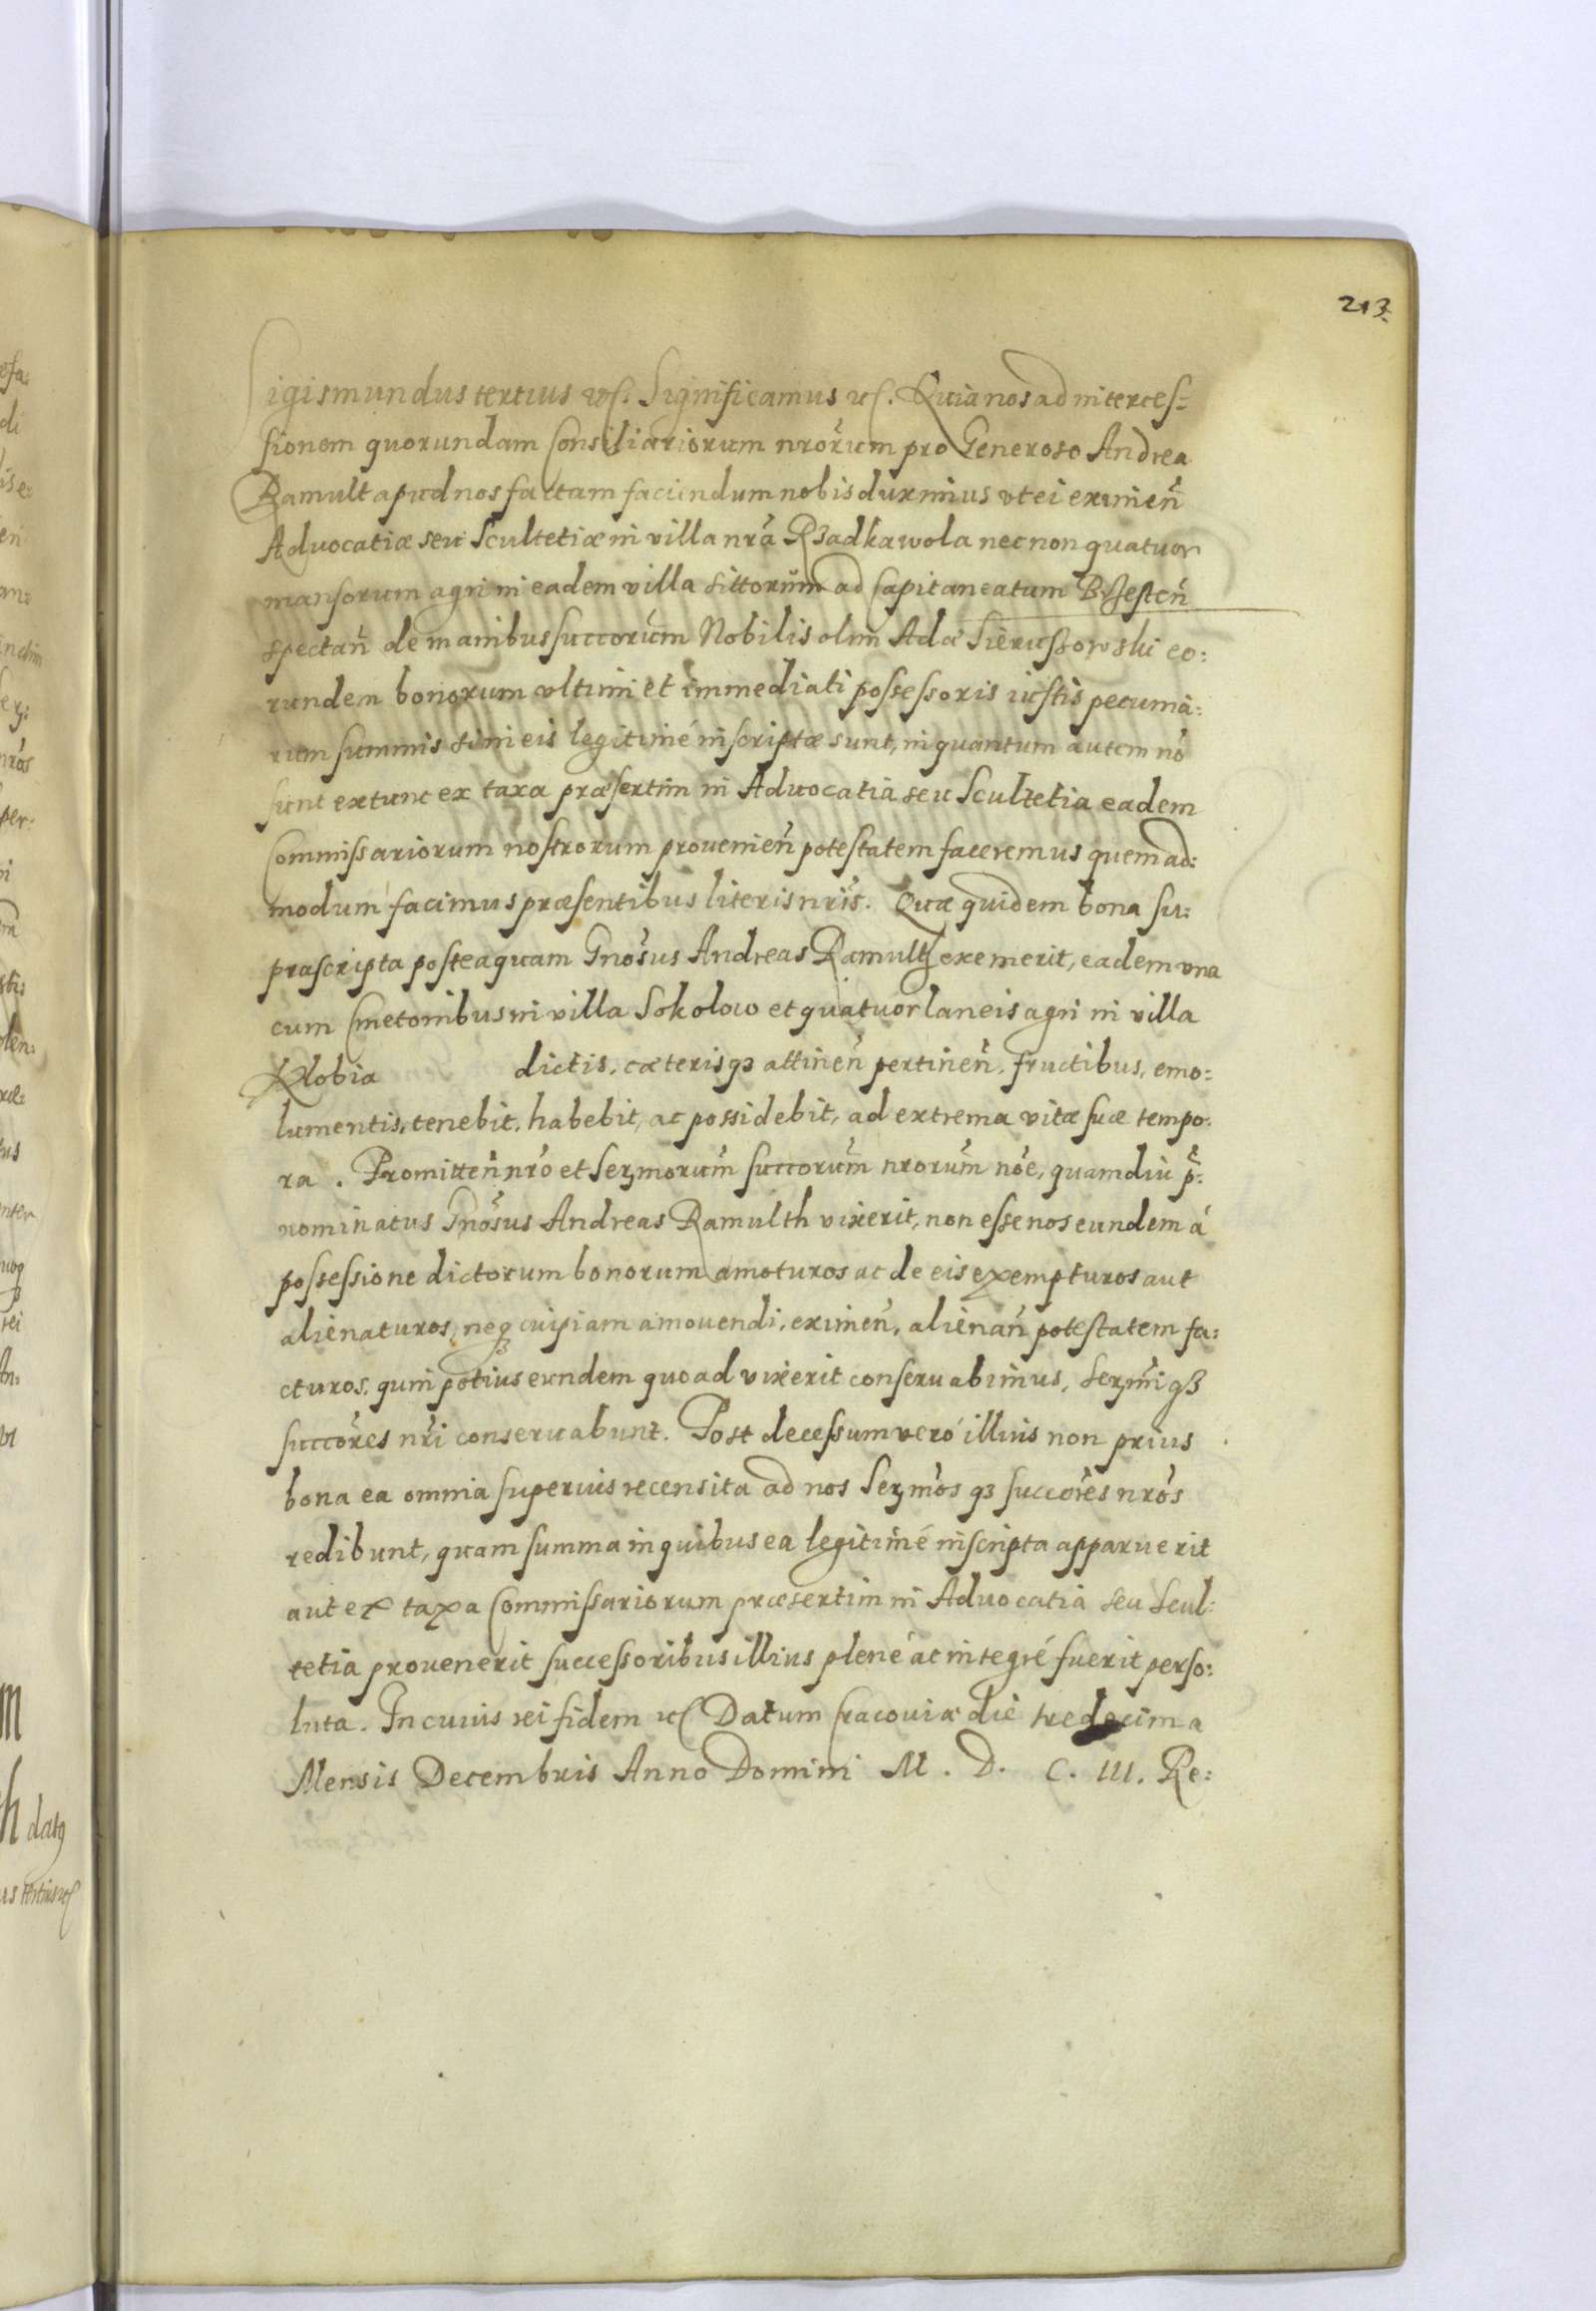 213.
Sigismundus tertius etc. Significamus etc. Quia nos ad interces=
sionem quorundam Consiliariorum nrorum pro Generoso Andrea
Ramult apud nos factam faciendum nobis duximus vt ei eximen̄
Advocatiæ seu Scultetiæ in villa nrā Rzadkawola nec non quatuor
mansorum agri in eadem villa sittorum ad Capitaneatum Brzesten̄
spectan̄ de manibus succorum Nobilis olim Adæ Sierussowski eo:
rundem bonorum vltimi et immediati possessoris iustis pecunia:
rum summis si in eis legitimé inscriptæ sunt, in quantum autem nō
sunt extunc ex taxa præsertim in Advocatia seu Scultetia eadem
Commissariorum nostrorum provenien̄ potestatem faceremus quemad:
modum facimus præsentibus literis nris. Quæ quidem bona su:
prascripta posteaquam Gnosus Andreas Ramultz exemerit, eadem vna
cum Cmetonibus in villa Sokolow et quatuor laneis agri in villa
Klobia dictis, cæterisqz attinen̄ pertinen̄, fructibus, emo:
lumentis, tenebit, habebit, ac possidebit, ad extrema vitæ suæ tempo:
ra. Promitten̄ nrō et Sermorum succorum nrorum nōe, quamdiu p̄:
nominatus Gnosus Andreas Ramulth vixerit, non esse nos eundem á
possessione dictorum bonorum amoturos ac de eis exempturos aut
alienaturos, neqz cuipiam amouendi, eximen̄, alienan̄ potestatem fa:
cturos, quin potius eundem quoad vixerit conseruabimus, Sermiqz
succores nri conseruabunt. Post decessum veró illius non prius
bona ea omnia superius recensita ad nos Sermosqz succores nros
redibunt, quam summa in quibus ea legitimé inscripta apparuerit
aut ex taxa Commissariorum præsertim in Advocatia seu Scul:
tetia prouenerit successoribus illius plené ac integré fuerit perso:
luta. In cuius rei fidem etc Datum Cracouiæ die tredecima
Mensis Decembris Anno Domini M. D. C. III. Re: